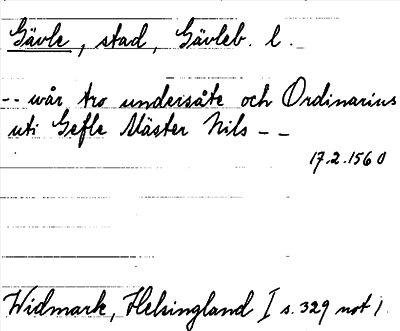 Gävle, stad, Gävleb. l.
-- wår tro undersåte och Ordinarius
uti Gefle Mäster Nils --
17.2.1560
Widmark, Helsingland I s. 329 not 1.